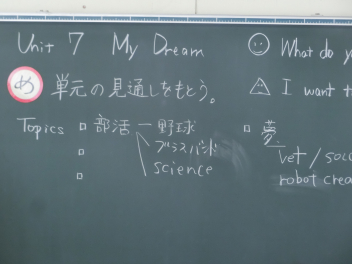 Unit 7 My Dream
め 単元の見通しをもとう。
Topics 部活 ー 野球
ブラスバンド
science
What do y
I want t
夢
vet / socc
robot crea